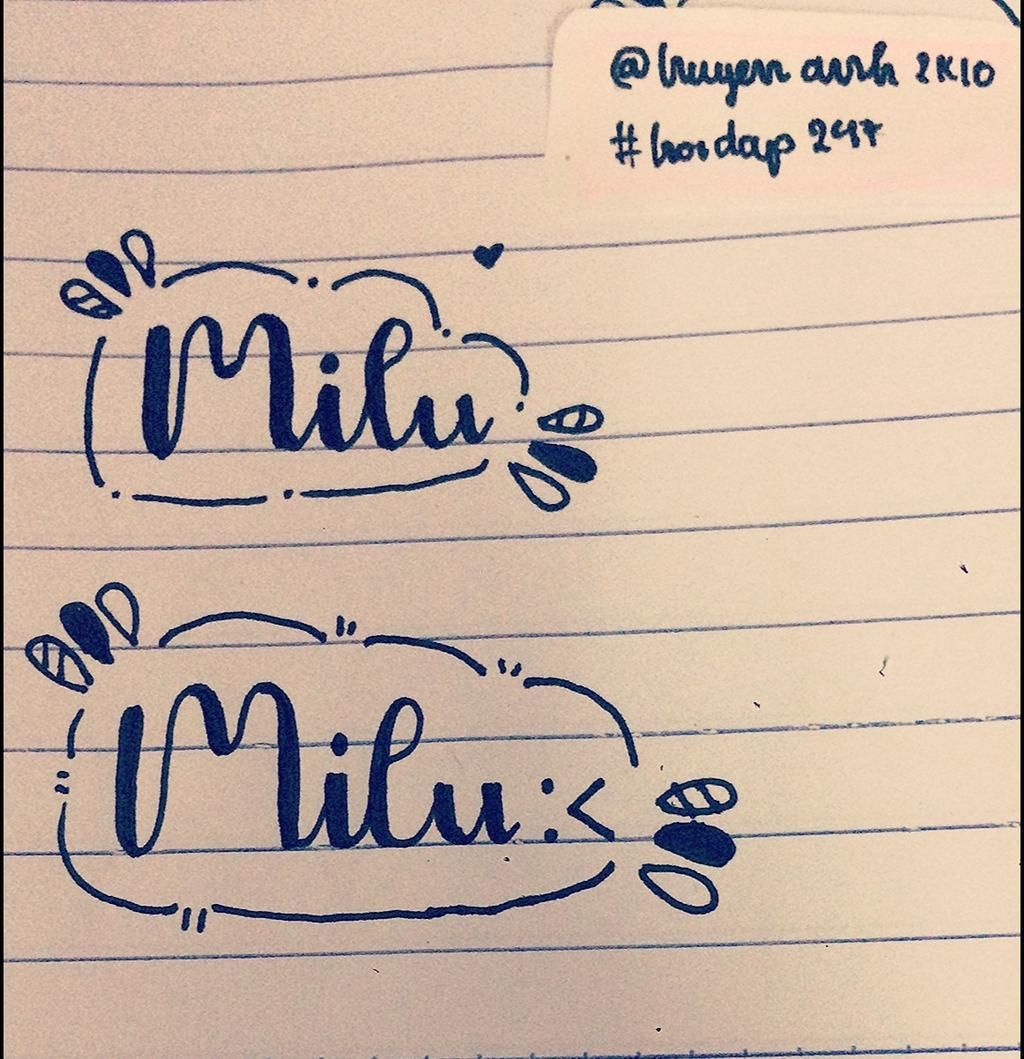 @huyen anh 2K10
#hoidap 247
Milu
Milu:<